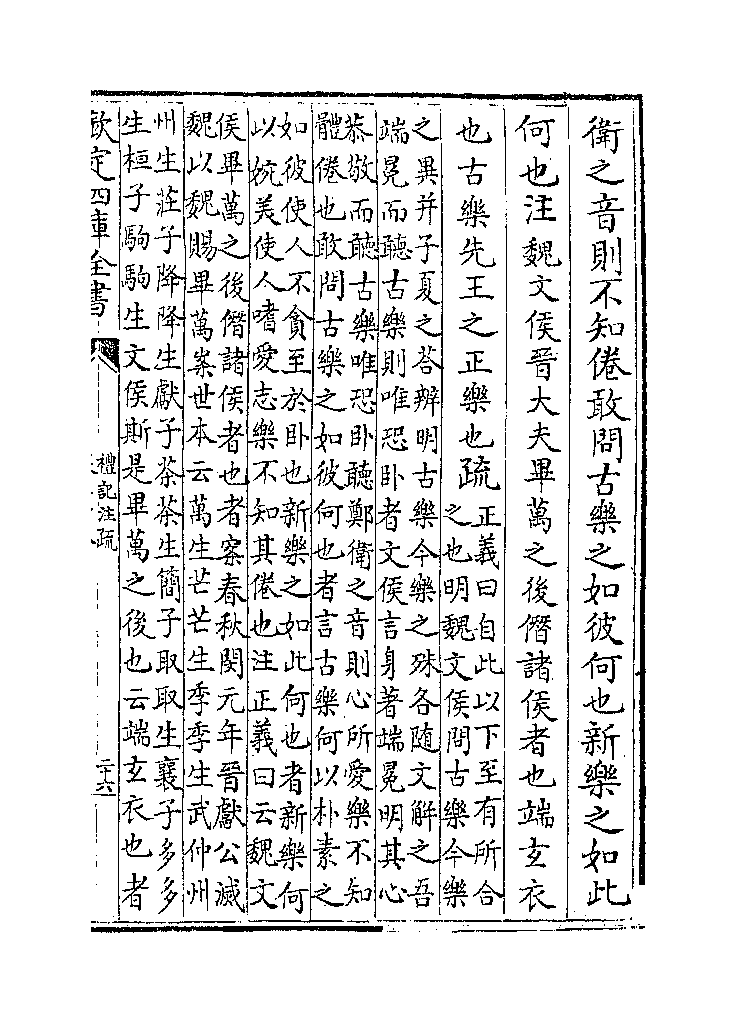 衛之音則不知倦敢問古樂之如彼何也新樂之如此
何也注魏文侯晉大夫畢萬之後僭諸侯者也端玄衣
也古樂先王之正樂也疏正義曰自此以下至有所合
之也明魏文侯問古樂今樂
之異并子夏之荅辨明古樂今樂之殊各随文解之吾
端冕而聽古樂則唯恐卧者文侯言身著端冕明其心
恭敬而聽古樂唯恐卧聽鄭衛之音則心所愛樂不知
體倦也敢問古樂之如彼何也者言古樂何以朴素之
如彼使人不貪至於卧也新樂之如此何也者新樂何
以婉美使人嗜愛志樂不知其倦也注正義曰云魏文
侯畢萬之後僭諸侯者也者案春秋閔元年晉獻公滅
魏以魏賜畢萬案世本云萬生芒芒生季季生武仲州
州生莊子降降生獻子荼荼生簡子取取生襄子多多
生桓子駒駒生文侯斯是畢萬之後也云端玄衣也者
欽定四庫全書
禮記注疏
二十六